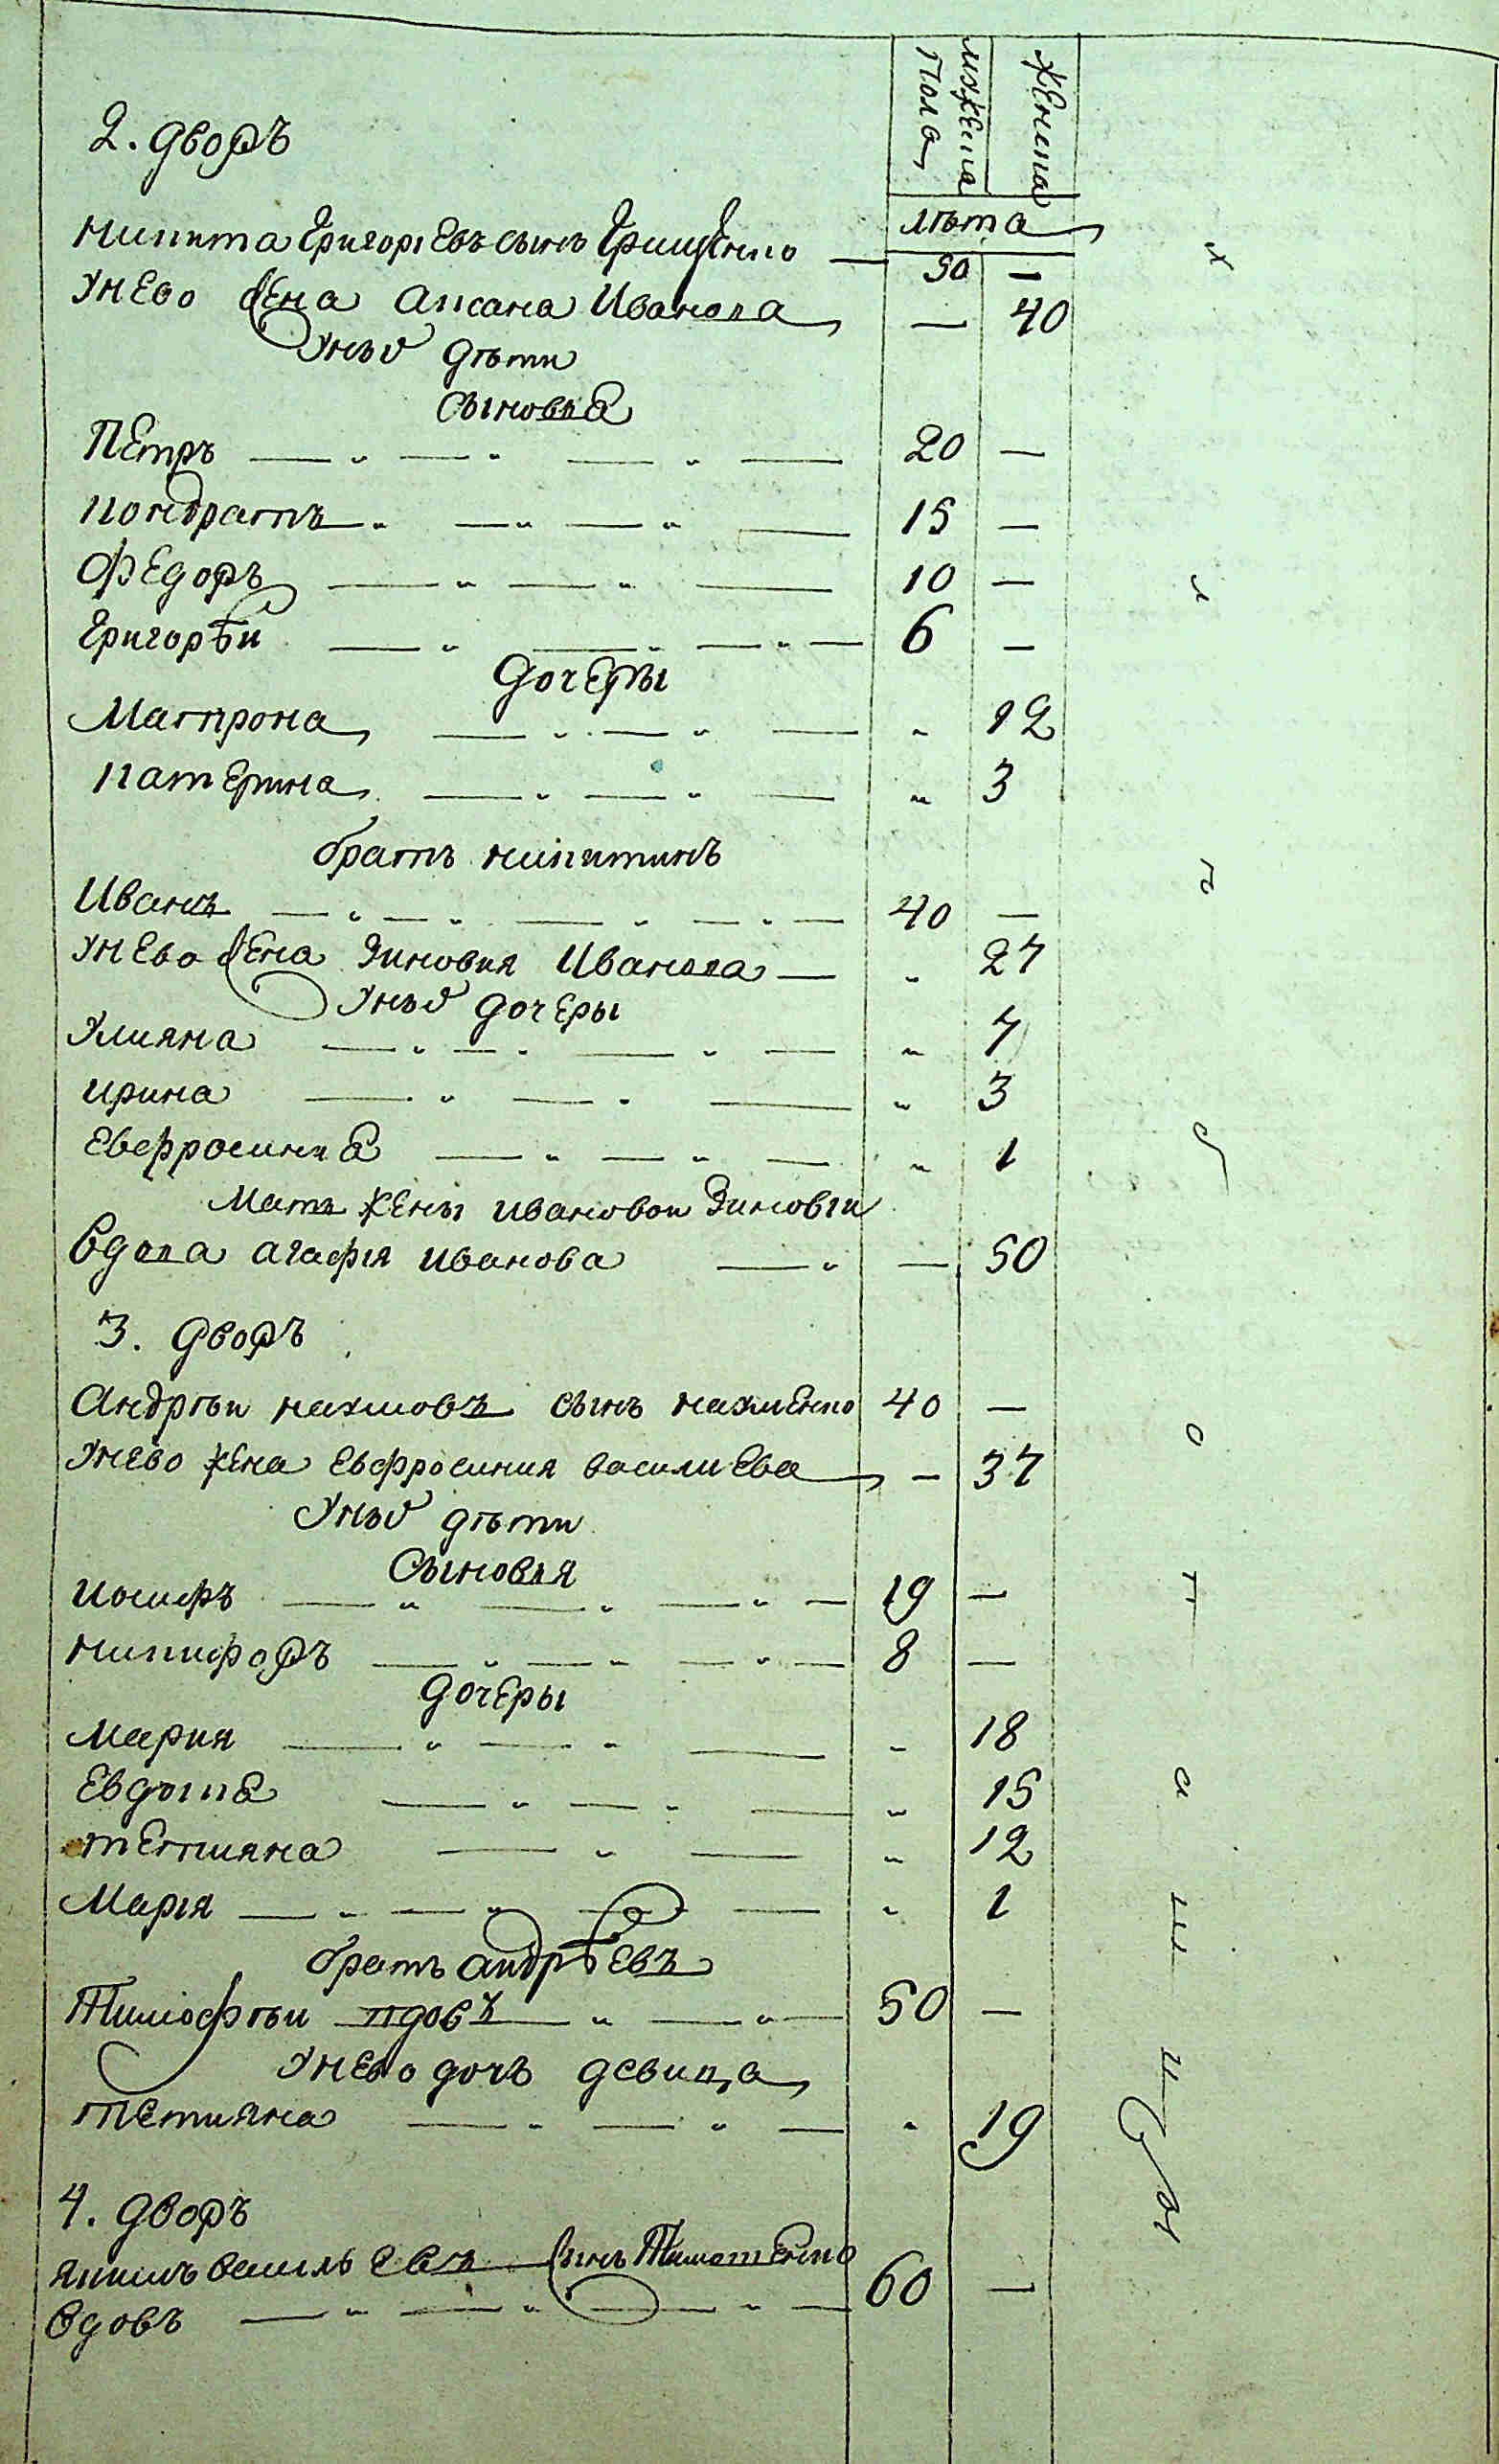 мужеска пола
женска
лѣта
2. дворъ
Никита Григориевъ сынъ Грищенко — 50 —
Унево жена Аксана Иванова — 40
Унихъ дѣти
Сыновья
Петръ — 20 —
Кондратъ — 15 —
Федоръ — 10 —
Григорѣй — 6 —
дочеры
Матрона — 12
Катерина — 3
братъ Никитинъ
Иванъ — 40 —
Унево жена Зиновия Иванова — 27
Унихъ дочеры
Улияна — 7
Ирина — 3
Евфросиния — 1
Мать жены Ивановой Зиновіи
Вдова Агафія Иванова — 50
3. дворъ
Андрѣй Наумовъ сынъ Науменко 40 —
Унево жена Евфросиния Василиева — 37
Унихъ дѣти
Сыновья
Иосифъ — 19 —
Никифоръ — 8 —
дочеры
Мария — 18
Евдокия — 15
Тетияна — 12
Марія — 1
братъ Андрѣевъ
Тимофѣй вдовъ — 50 —
Унево дочь девица
Тетияна — 19
4. дворъ
Яким Василь евъ сынъ 60 —
Вдовъ